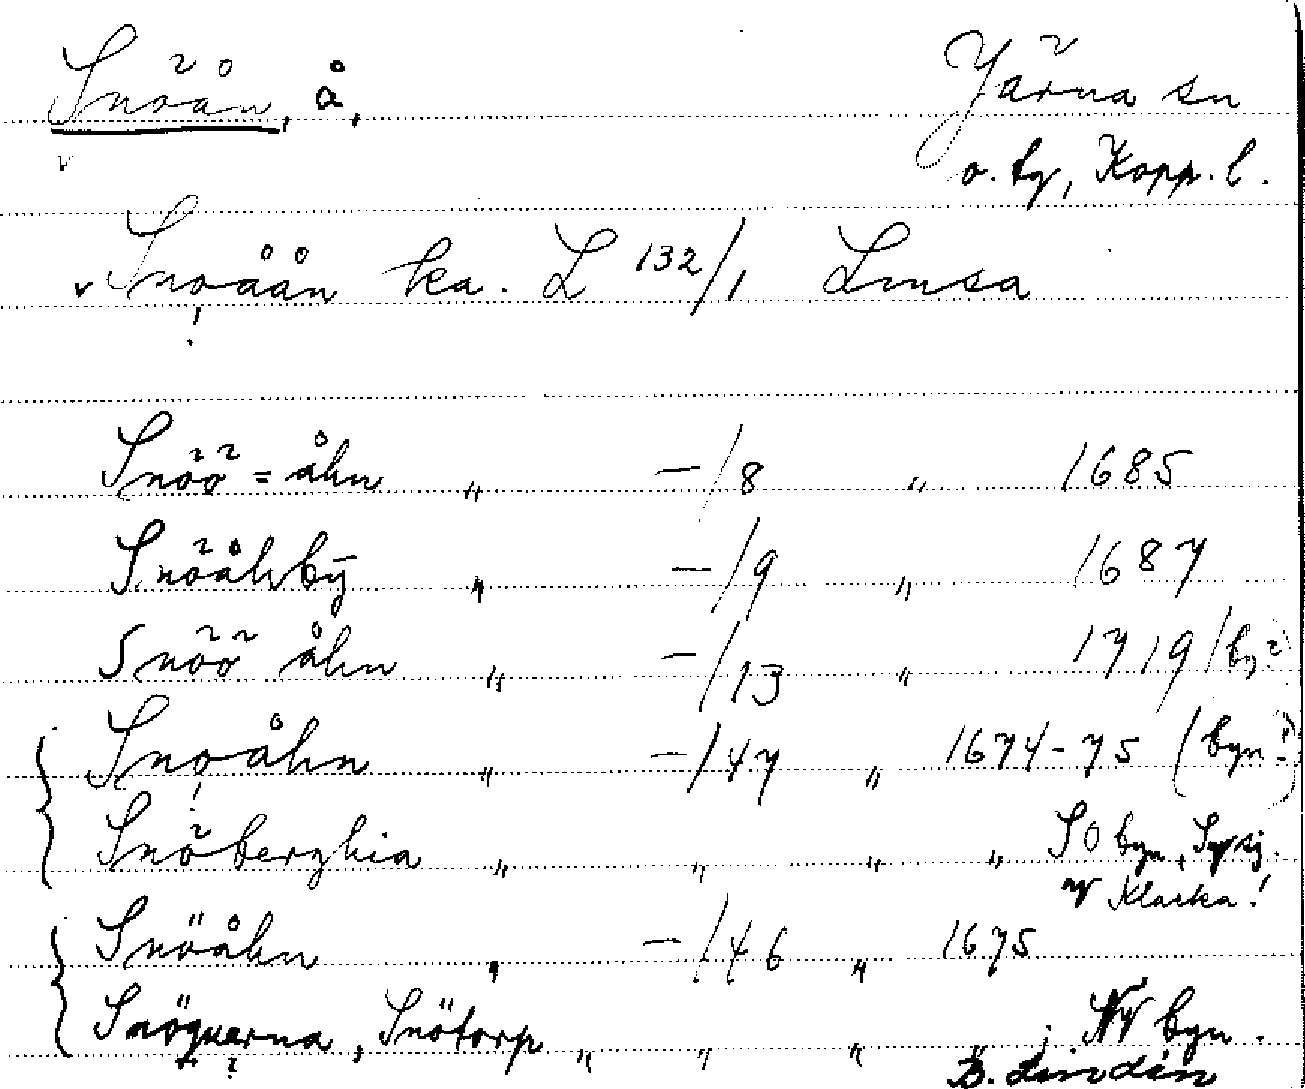 Snöån, å, Järna sn
o. tg, Kopp. l.
v Snoåån ka. L 132/1 Lmsa
!
Snöö=åhn " -/8 " 1685
Snöåhrbÿ " -/9 " 1687
Snöö åhn " -/13 " 1719 /by?
Snoåhn " -/47 " 1674-75 (byn?)
Snöberghia " " " " SO byn,
Klacka!
Snöåhn " -/46 " 1675
Snöquerna, Snötorp " " " " NV byn.
B. Lindén